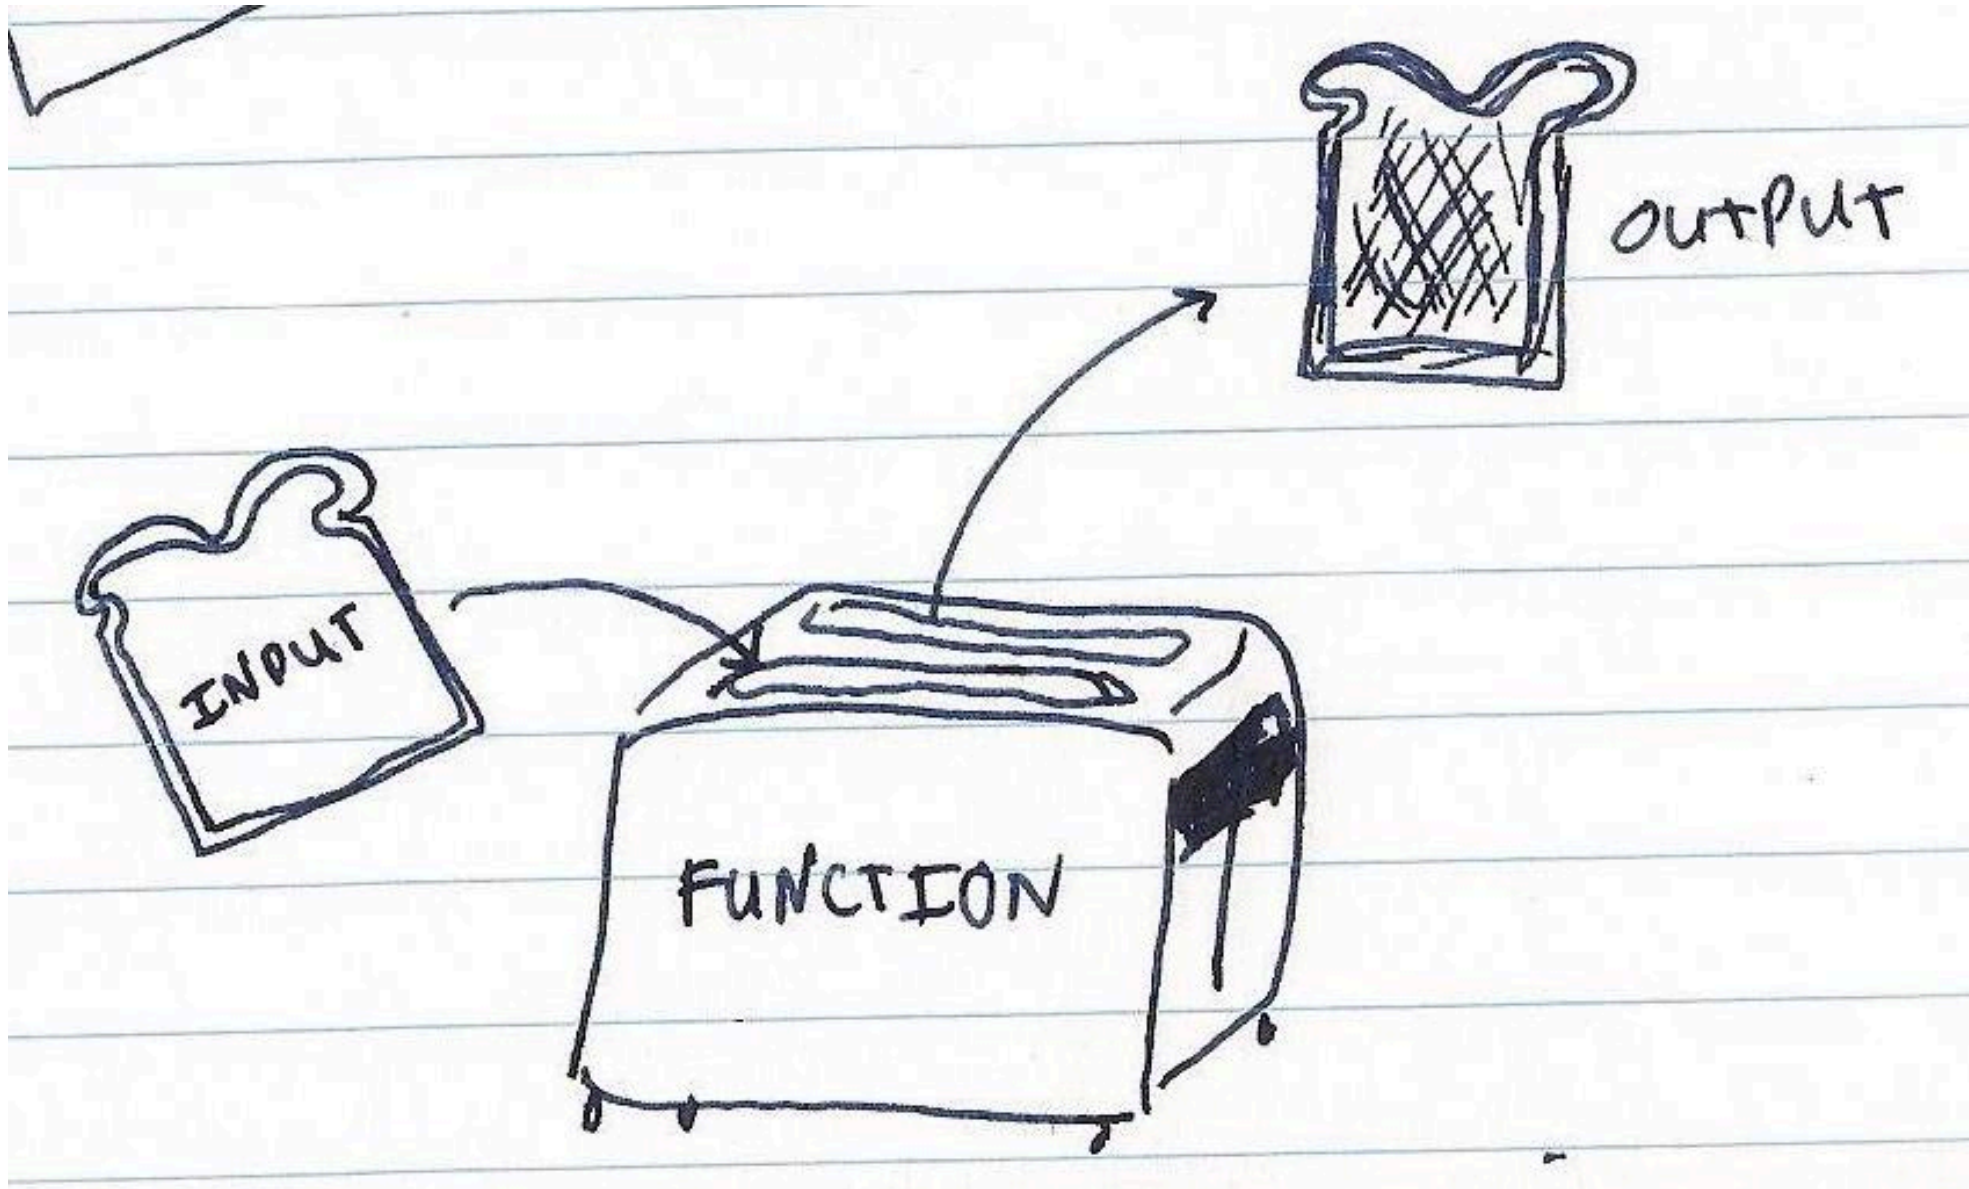 OUTPUT
INPUT
FUNCTION